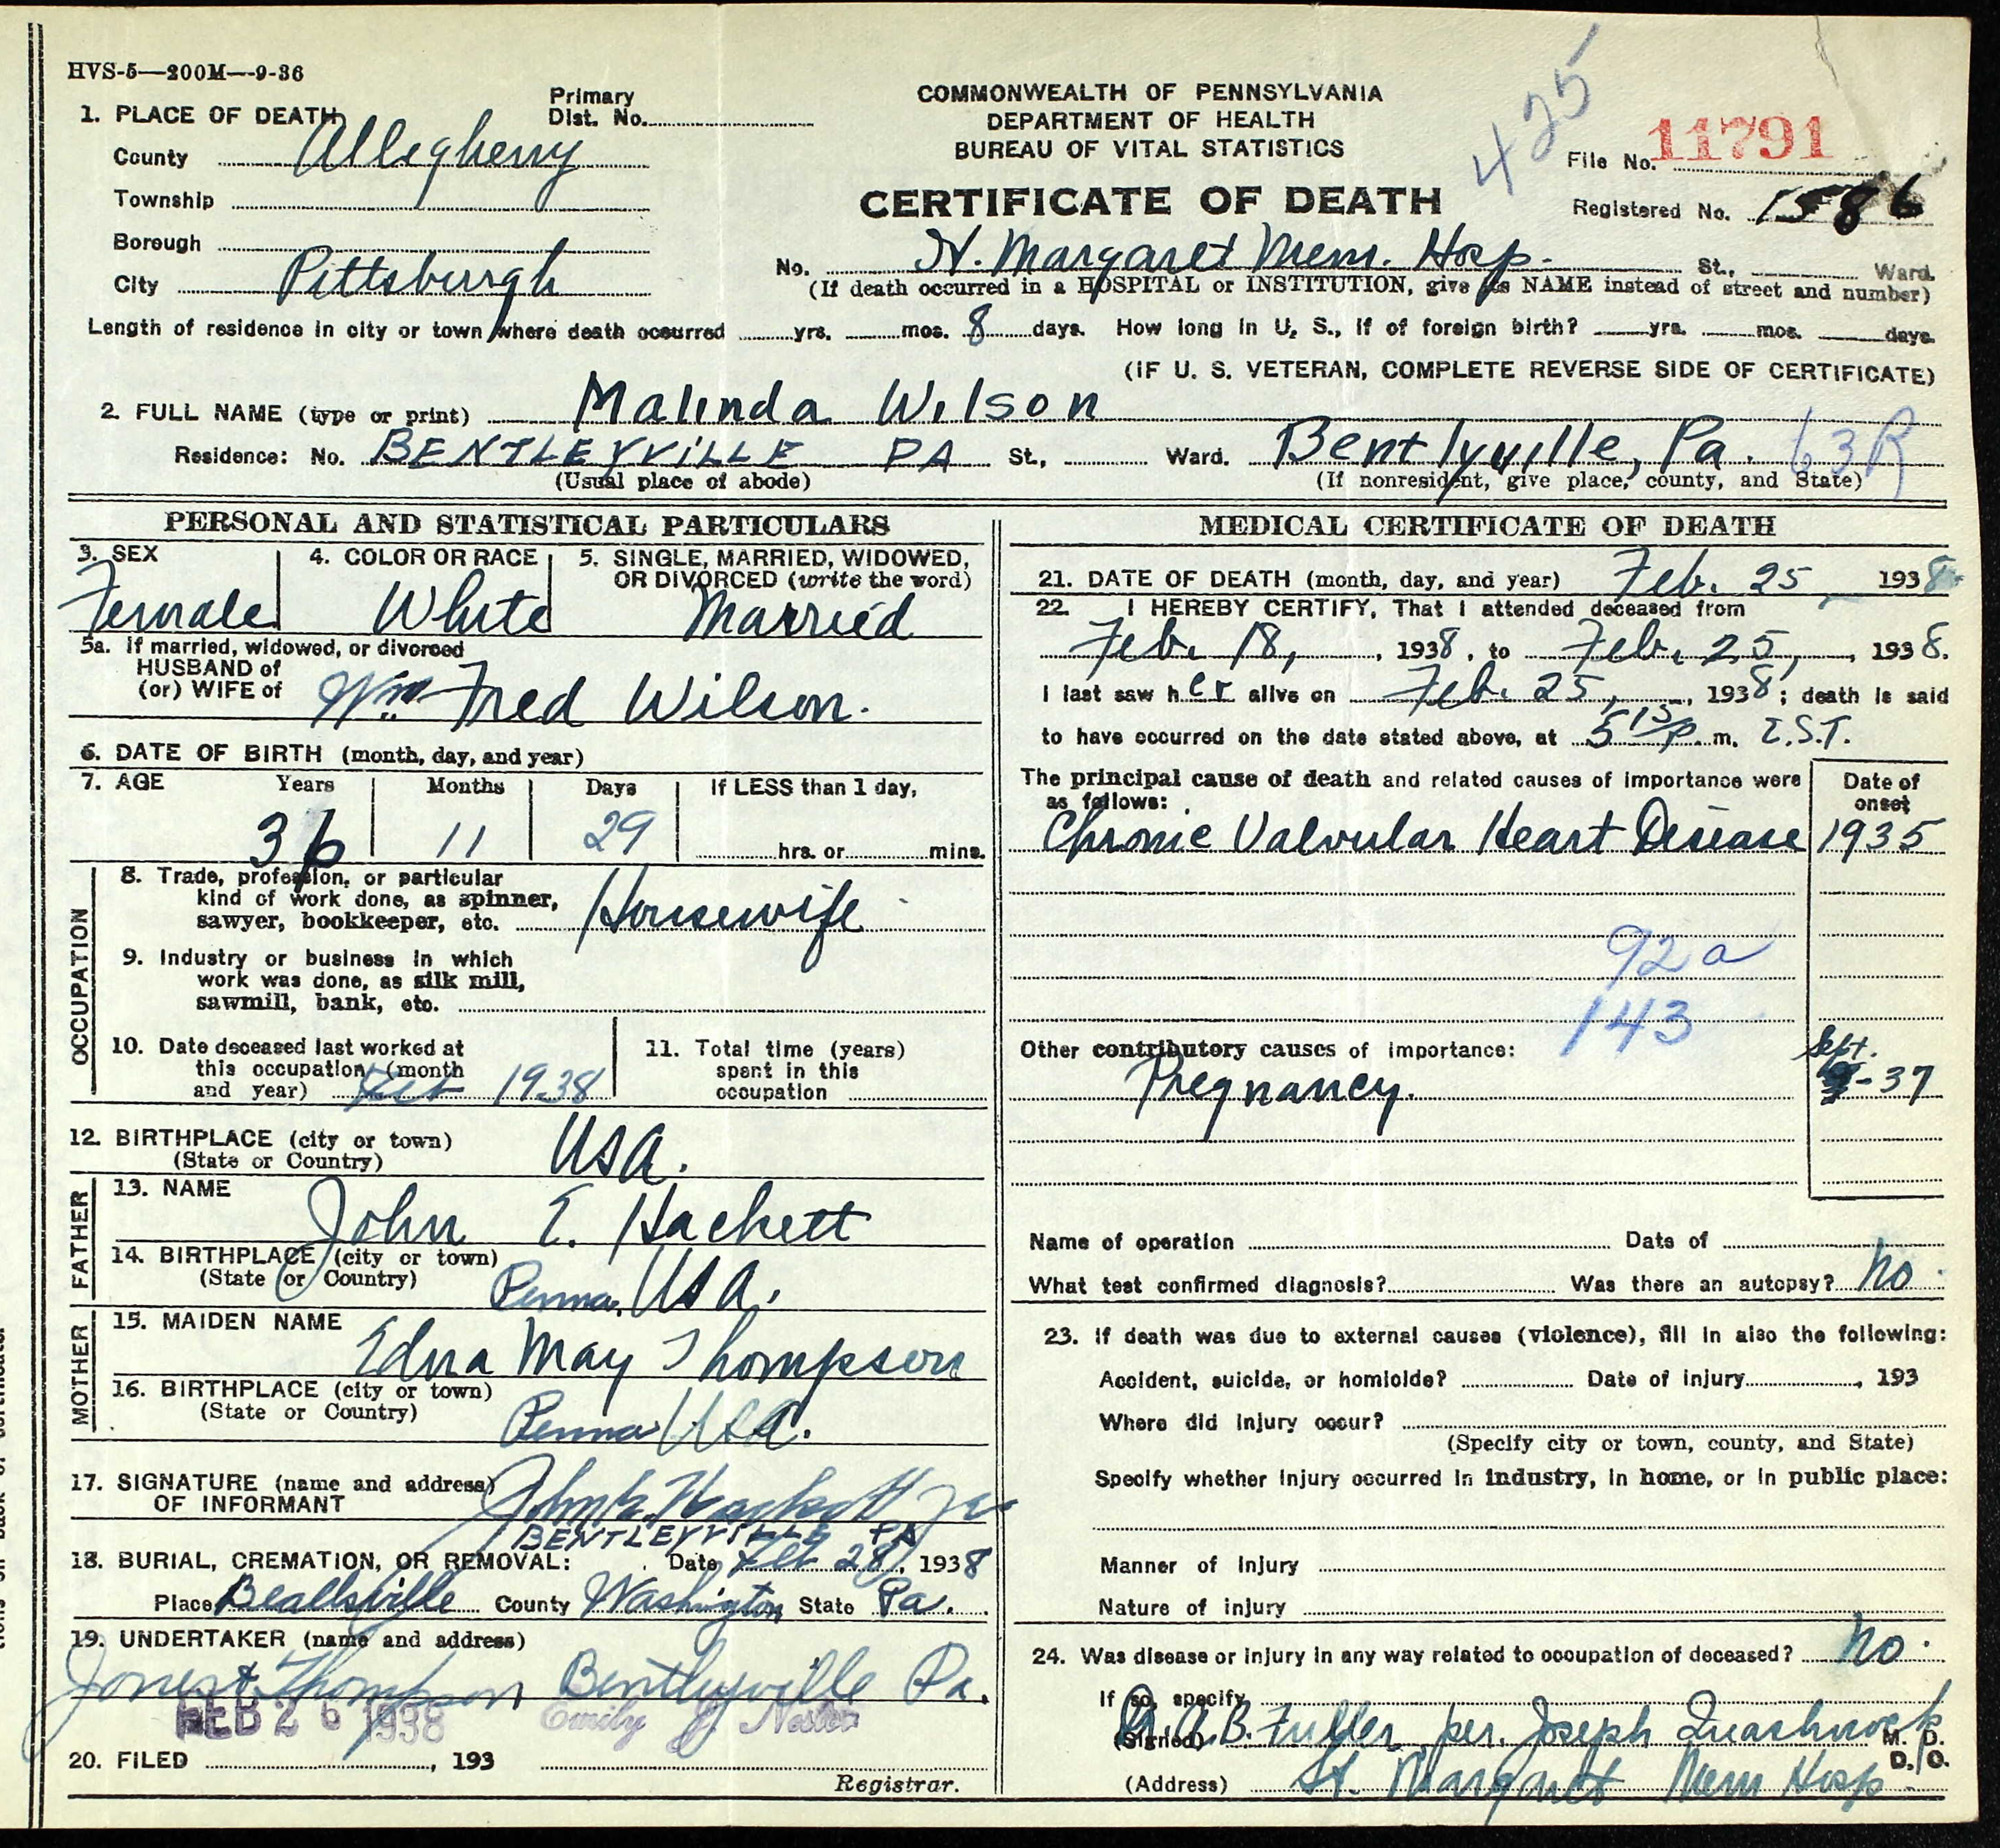 HVS-5—200M—9-36
425
1. PLACE OF DEATH
Primary Dist. No.
County Allegheny
Township
Borough
City Pittsburgh
COMMONWEALTH OF PENNSYLVANIA
DEPARTMENT OF HEALTH
BUREAU OF VITAL STATISTICS
CERTIFICATE OF DEATH
File No. 11791
Registered No. 1586
No. St. Margaret Mem. Hosp. St., Ward.
(If death occurred in a HOSPITAL or INSTITUTION, give its NAME instead of street and number)
Length of residence in city or town where death occurred yrs. mos. 8 days. How long in U. S., if of foreign birth? yrs. mos. days.
(IF U. S. VETERAN, COMPLETE REVERSE SIDE OF CERTIFICATE)
2. FULL NAME (type or print) Malinda Wilson
Residence: No. BENTLEYVILLE PA St., Ward. Bentlyville, Pa. 63R
(Usual place of abode) (If nonresident, give place, county, and State)
PERSONAL AND STATISTICAL PARTICULARS
3. SEX 4. COLOR OR RACE 5. SINGLE, MARRIED, WIDOWED,
OR DIVORCED (write the word)
Female White Married
5a. If married, widowed, or divorced
HUSBAND of
(or) WIFE of Wm Fred Wilson.
6. DATE OF BIRTH (month, day, and year)
7. AGE Years Months Days If LESS than 1 day,
36 11 29 hrs. or mins.
OCCUPATION
8. Trade, profession, or particular
kind of work done, as spinner,
sawyer, bookkeeper, etc. Housewife
9. Industry or business in which
work was done, as silk mill,
sawmill, bank, etc.
10. Date deceased last worked at
this occupation (month
and year) Feb 1938
11. Total time (years)
spent in this
occupation
12. BIRTHPLACE (city or town)
(State or Country) USA.
FATHER
13. NAME John E. Hackett
14. BIRTHPLACE (city or town)
(State or Country) Penna. USA.
MOTHER
15. MAIDEN NAME Edna May Thompson
16. BIRTHPLACE (city or town)
(State or Country) Penna USA.
17. SIGNATURE (name and address)
OF INFORMANT John E. Hackett Jr
BENTLEYVILLE PA
18. BURIAL, CREMATION, OR REMOVAL: Date Feb 28, 1938
Place Beallsville County Washington State Pa.
19. UNDERTAKER (name and address)
Jones & Thompson Bentlyville Pa.
FEB 26 1938 Emily J. Nester
20. FILED , 193
Registrar.
MEDICAL CERTIFICATE OF DEATH
21. DATE OF DEATH (month, day, and year) Feb. 25 1938
22. I HEREBY CERTIFY, That I attended deceased from
Feb. 18, , 1938, to Feb. 25, , 1938.
I last saw her alive on Feb. 25, , 1938; death is said
to have occurred on the date stated above, at 5 15 P. m. E.S.T.
The principal cause of death and related causes of importance were
as follows:
Date of
onset
Chronic Valvular Heart Disease 1935
92a
143
Other contributory causes of importance:
Pregnancy. Sept. -37
Name of operation Date of
What test confirmed diagnosis? Was there an autopsy? No.
23. If death was due to external causes (violence), fill in also the following:
Accident, suicide, or homicide? Date of injury , 193
Where did injury occur?
(Specify city or town, county, and State)
Specify whether injury occurred in industry, in home, or in public place:
Manner of injury
Nature of injury
24. Was disease or injury in any way related to occupation of deceased? No.
If so, specify
(Signed) B. Fuller per. Joseph M. D.
D. O.
(Address) St. Margaret Mem Hosp